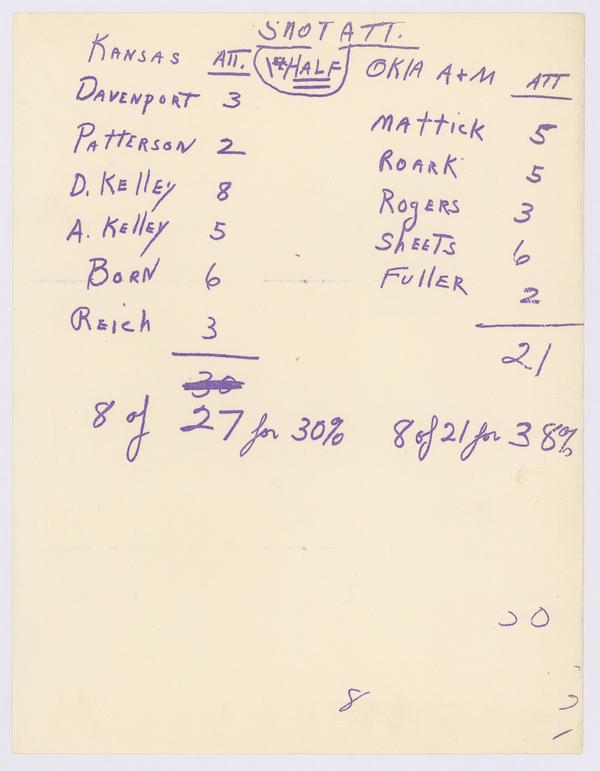 SHOT ATT.
KANSAS ATT. 1st HALF OKlA A+M ATT
DAVENPORT 3
PATTERSON 2
D. KEllEy 8
A. KEllEy 5
BORN 6
REich 3
30
8 of 27 for 30%
MATTicK 5
ROARK 5
RogERS 3
ShEETS 6
FUllER 2
21
8 of 21 for 38%
8